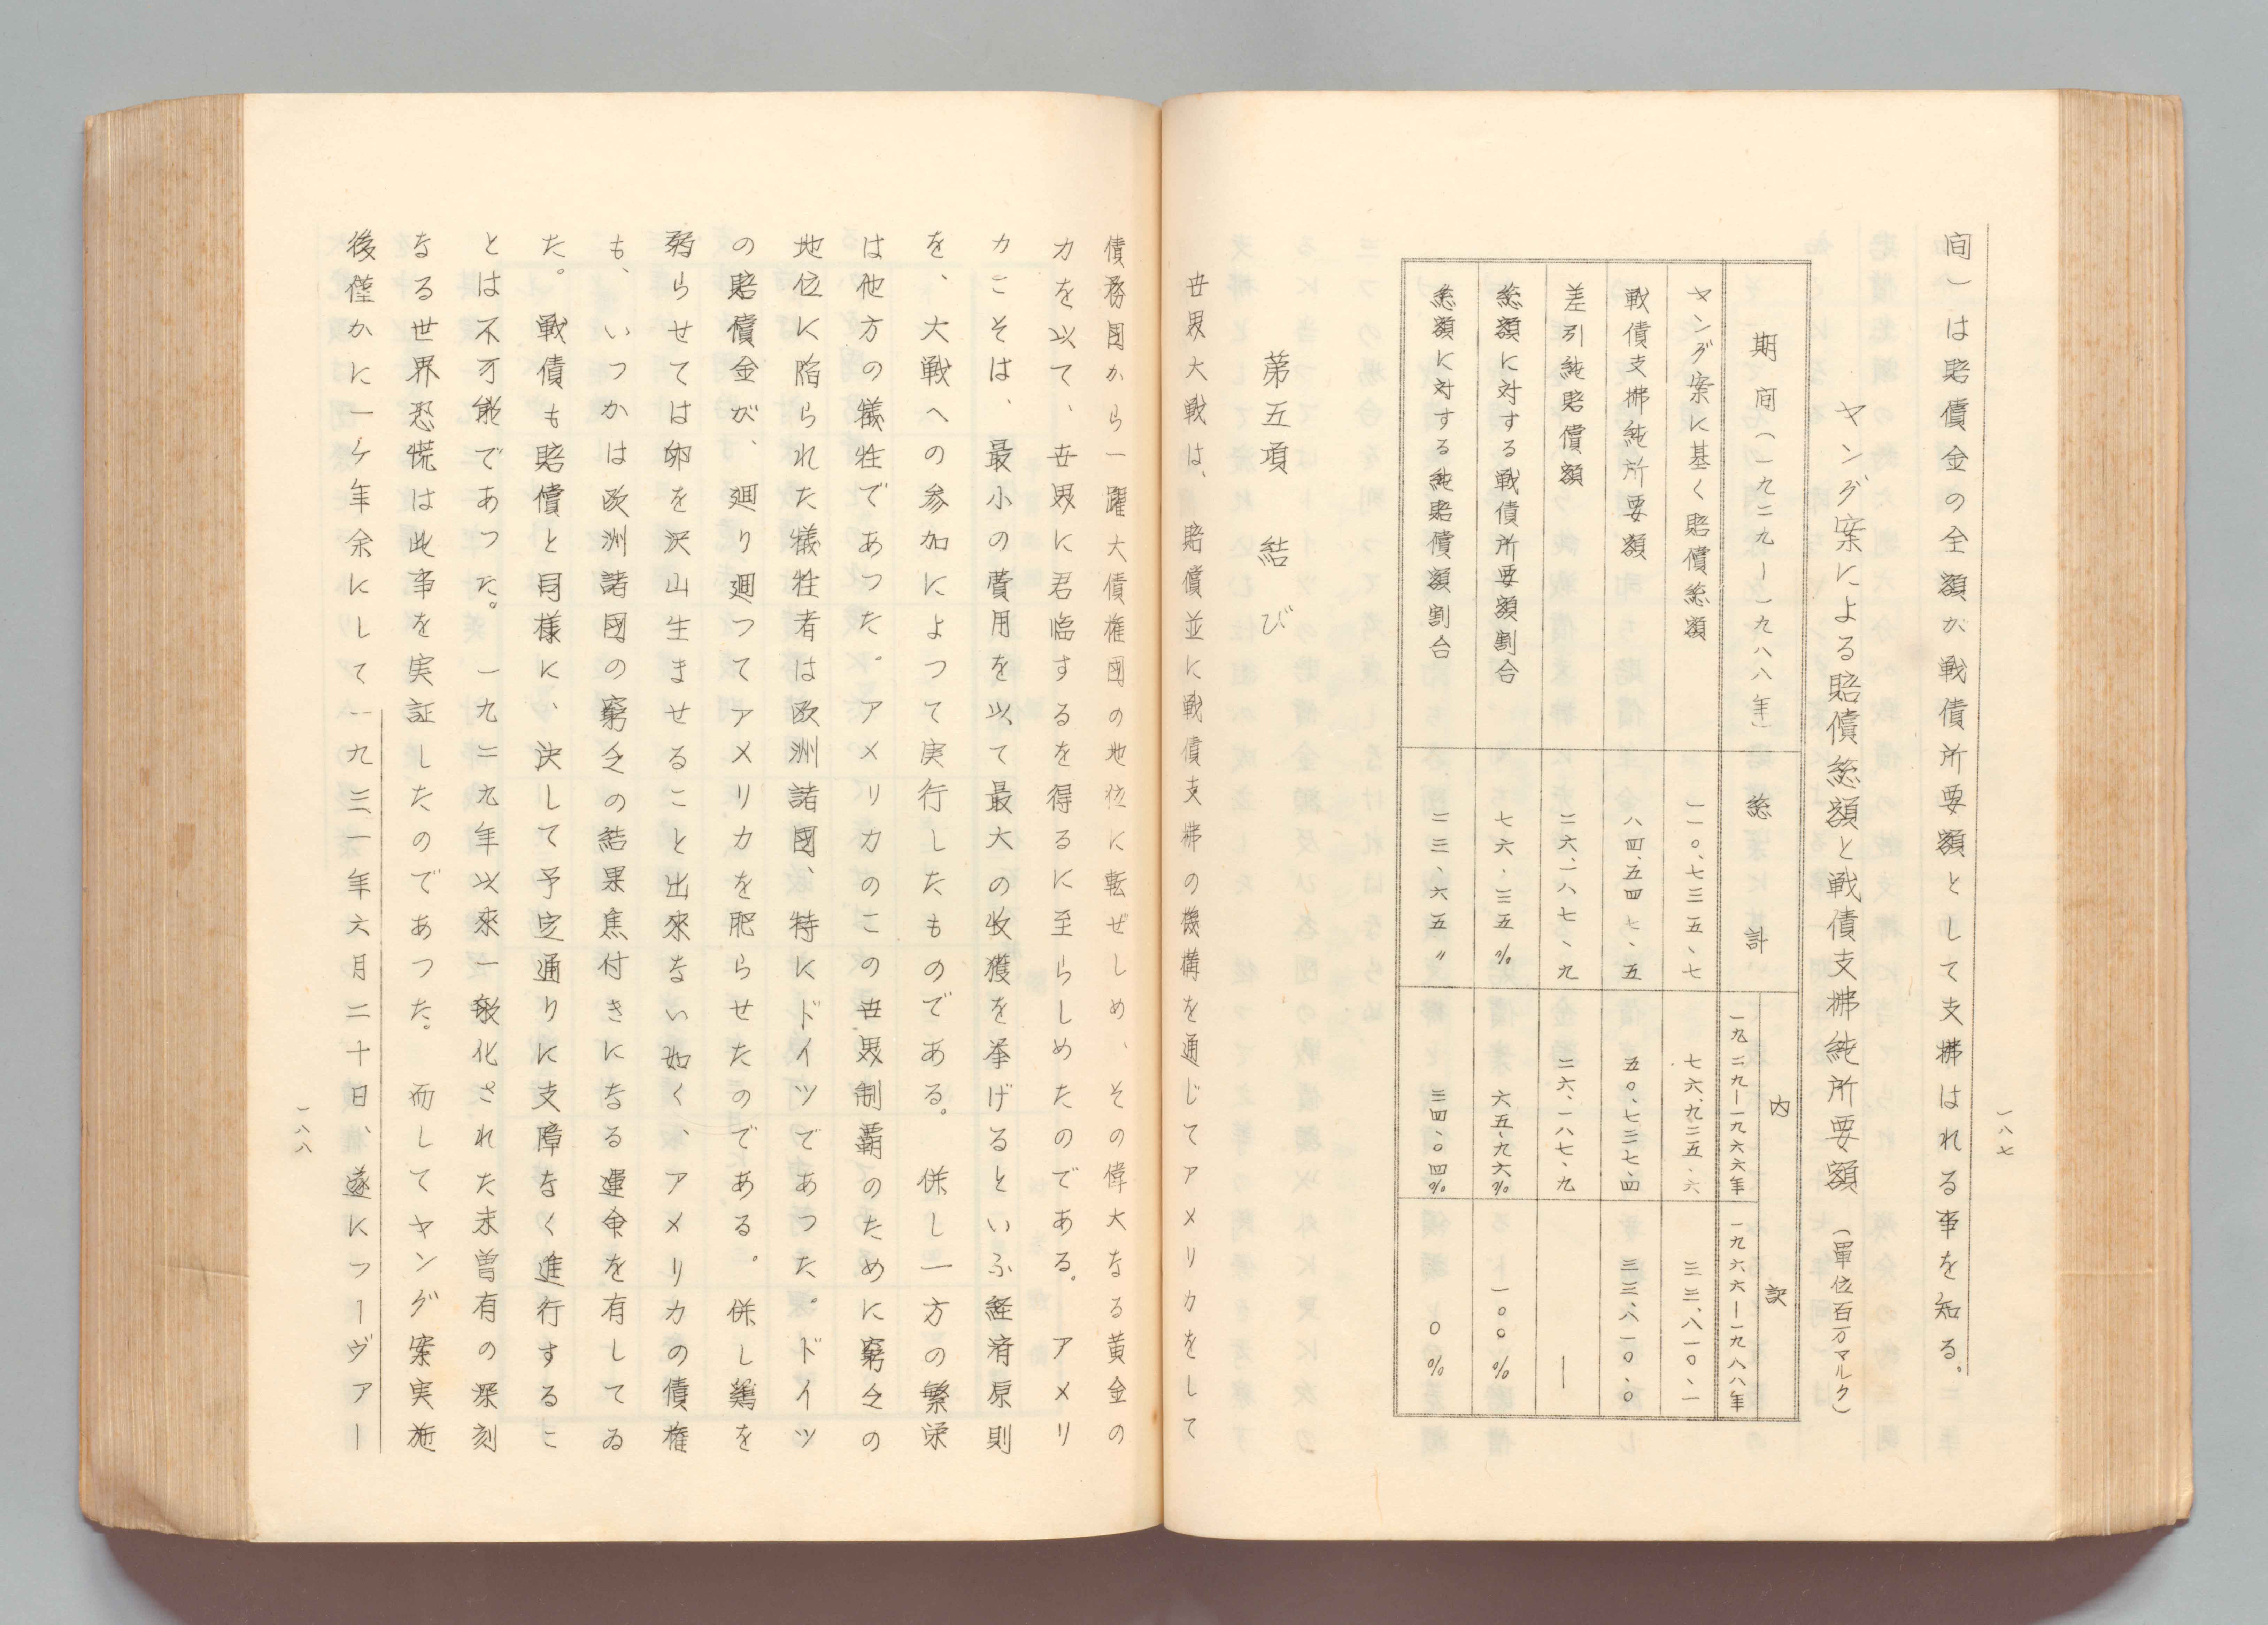 間）は賠償金の全額が戦債所要額として支拂はれる事を知る。
ヤング案による賠償総額と戦債支拂純所要額　（單位百万マルク）
期　間（一九二九ー一九八八年）　総　計　内　訳
一九二九ー一九六六年　一九六六ー一九八八年
ヤング案に基く賠償総額　一一〇、七三五、七　七六、九二五、六　三三、八一〇、一
戦債支拂純所要額　八四、五四七、五　五〇、七三七、四　三三、八一〇、〇
差引純賠償額　二六、一八七、九　二六、一八七、九　ー
総額に対する戦債所要額割合　七六、三五%　六五、九六%　一〇〇%
総額に対する純賠償額割合　二三、六五〃　三四、〇四%　〇%
第五項　結び
世界大戦は、賠償並に戦債支拂の機構を通じてアメリカをして
一八七
債務國から一躍大債権國の地位に転ぜしめ、その偉大なる黄金の
力を以て、世界に君臨するを得るに至らしめたのである。アメリ
カこそは、最小の費用を以て最大の收獲を挙げるといふ経済原則
を、大戦への参加によつて実行したものである。併し一方の繁栄
は他方の犠牲であつた。アメリカのこの世界制覇のために窮乏の
地位に陥られた犠牲者は欧洲諸國、特にドイツであつた。ドイツ
の賠償金が、廻り廻つてアメリカを肥らせたのである。併し鶏を
弱らせては卵を沢山生ませること出來ない如く、アメリカの債権
も、いつかは欧洲諸國の窮乏の結果焦付きになる運命を有してゐ
た。戦債も賠償と同様に、決して予定通りに支障なく進行するこ
とは不可能であつた。一九二九年以來一般化された未曽有の深刻
なる世界恐慌は此事を実証したのであつた。而してヤング案実施
後僅かに一ケ年余にして一九三一年六月二十日、遂にフーヴアー
一八八